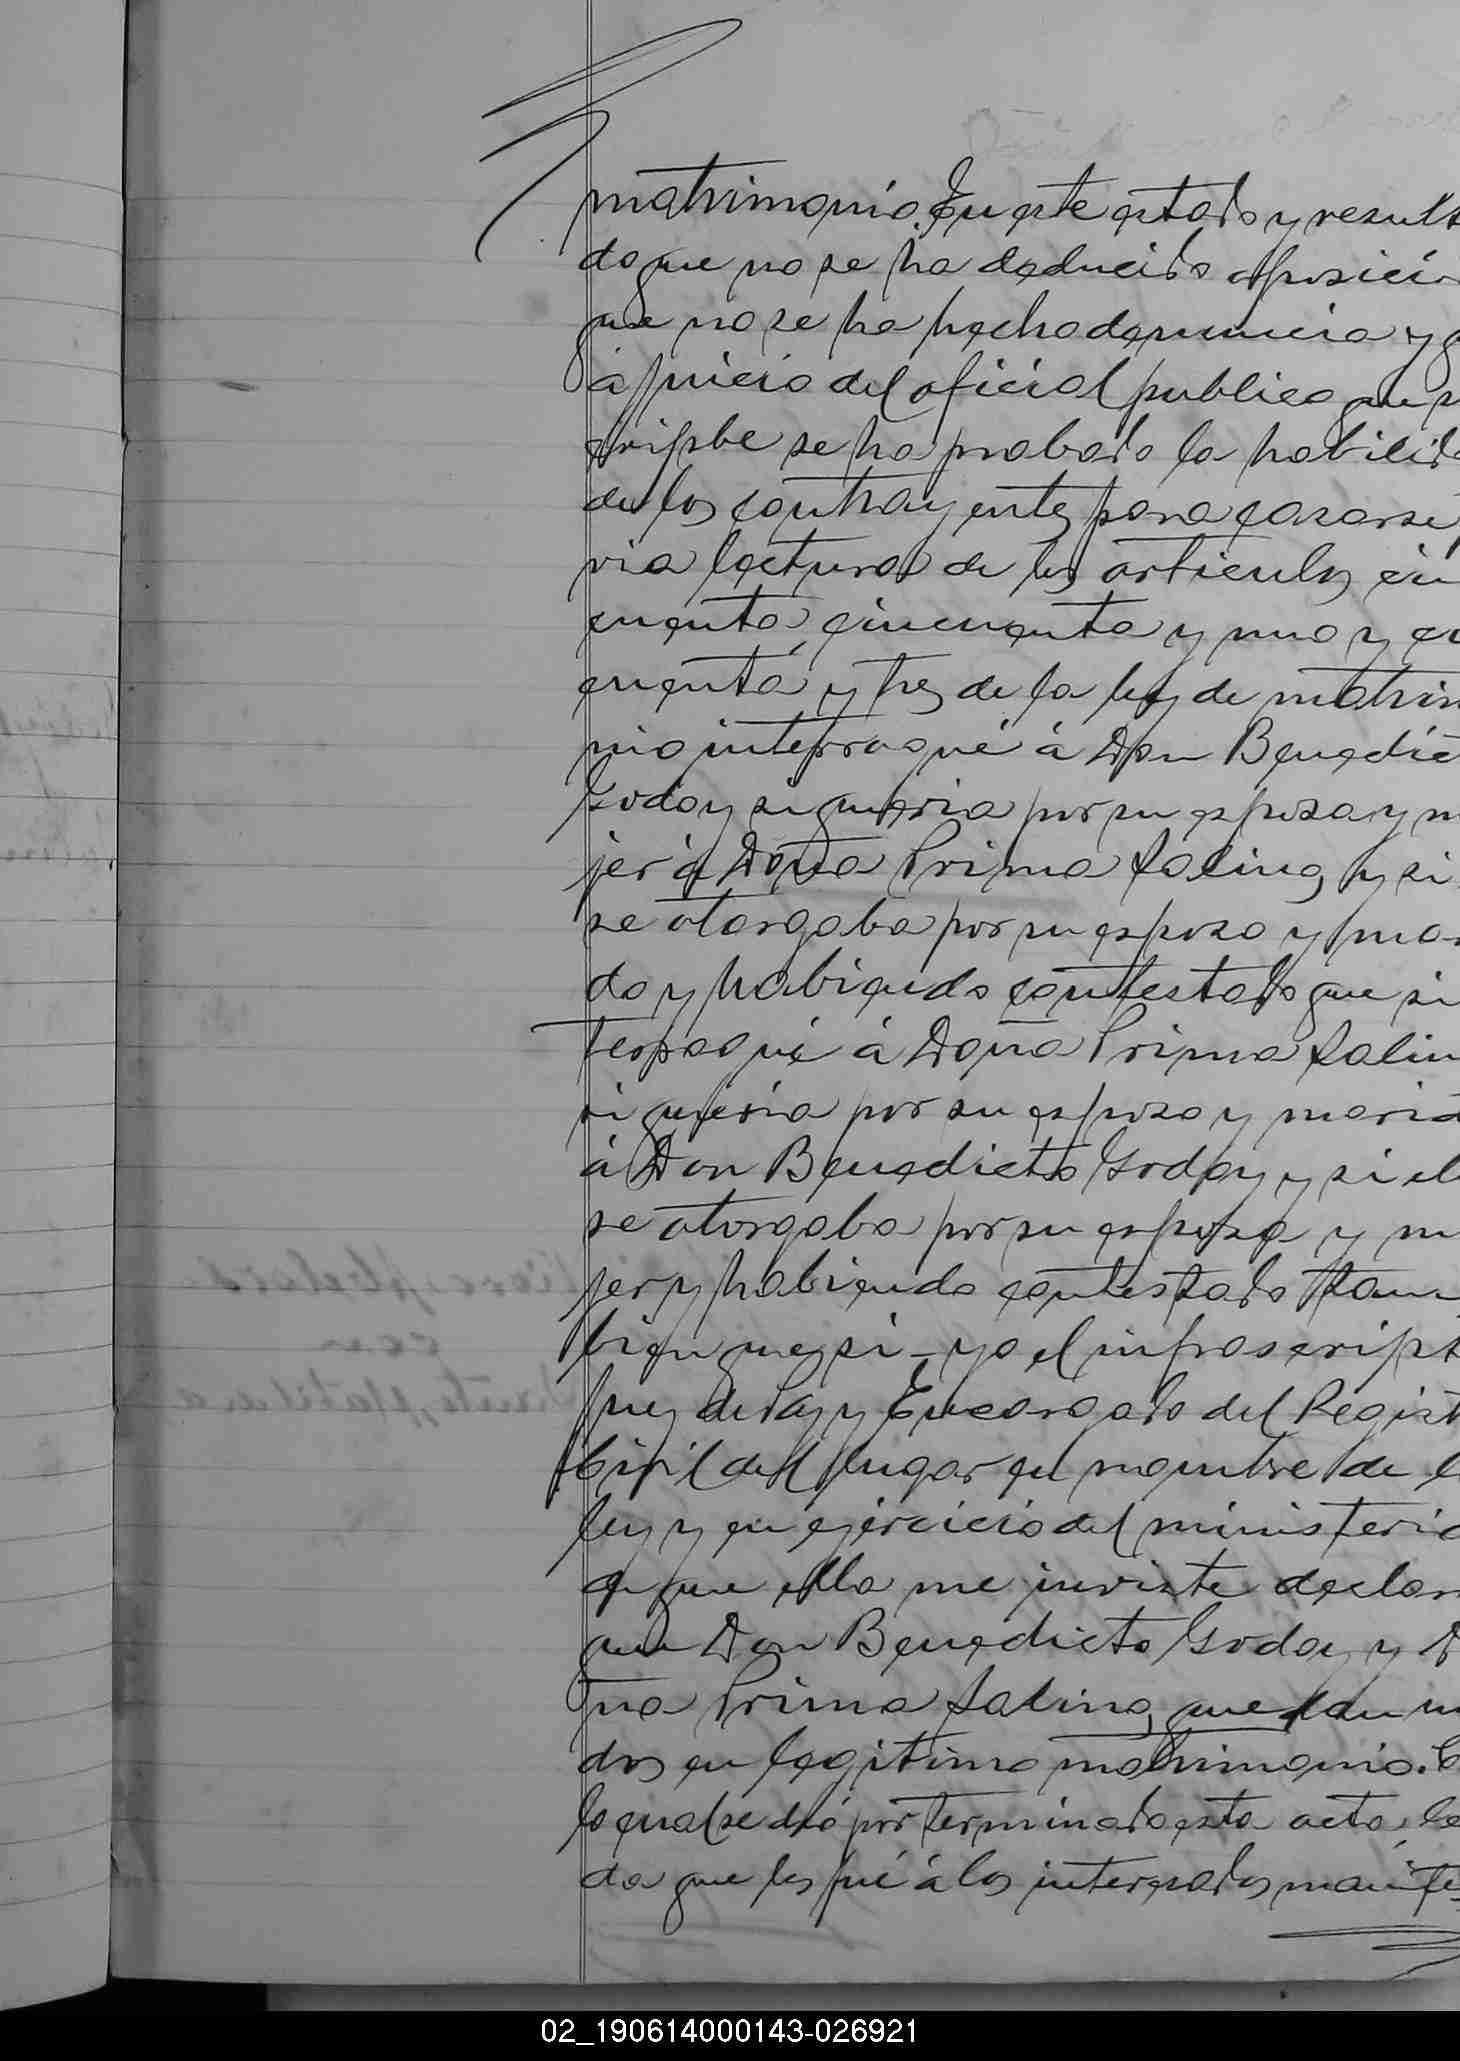 matrimonio. En este estado y result
do que no se ha deducido oposició
que no se ha hecho denuncia y q
á juicio del oficial publico que s
cripbe se ha probado la habilida
de los contrayentes para casarse p
via lectura de los articulos cin
cuenta, cincuenta y uno y cin
cuenta y tres de la ley de matrim
nio interrogué á Don Benedict
Godoy si queria por su esposa y m
jer á Doña Prima Salinas y si
se otorgaba por su esposo y mar
do y habiendo contestado que si
terrogué á Doña Prima Salin
si queria por su esposo y marid
á Don Benedicto Godoy y si ell
se otorgaba por su esposa y mu
jer y habiendo contestado tam
bien que si - yo el infrascript
Juez de Paz y Encargado del Regist
Civil del lugar en nombre de l
ley y en ejercicio del ministerio
de que ella me inviste declar
que Don Benedicto Godoy y D
ña Prima Salinas quedan un
dos en legitimo matrimonio. C
lo cual se dió por terminado esta acta, le
da que les fué á los interesados manifes
02_190614000143-026921